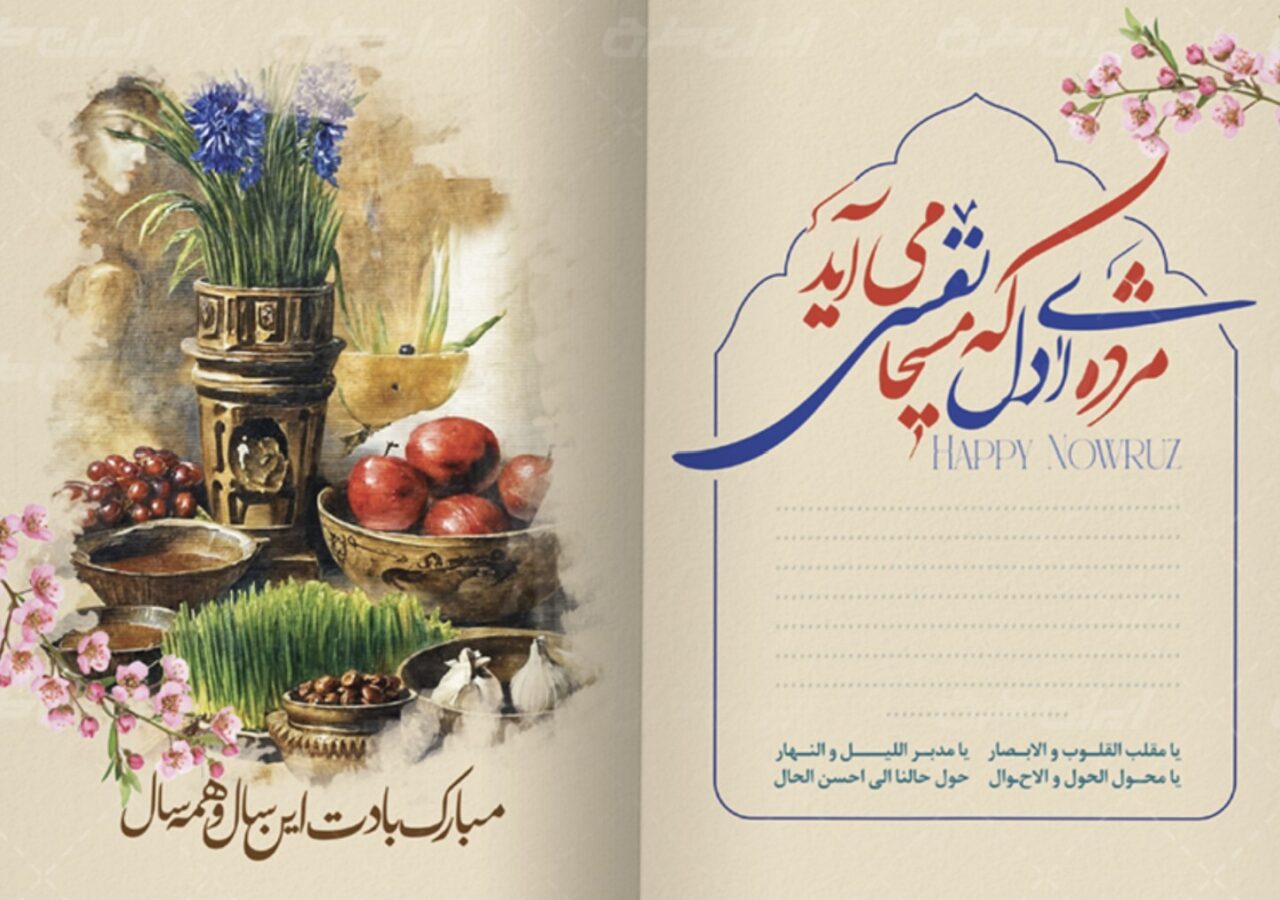 مژده ای دل که مسیحا نفسی می آید
HAPPY NOWRUZ
یا مقلب القلوب و الابصار یا مدبر اللیل و النهار
یا محول الحول و الاحوال حول حالنا الی احسن الحال
مبارک بادت این سال و همه سال
ایران طرح